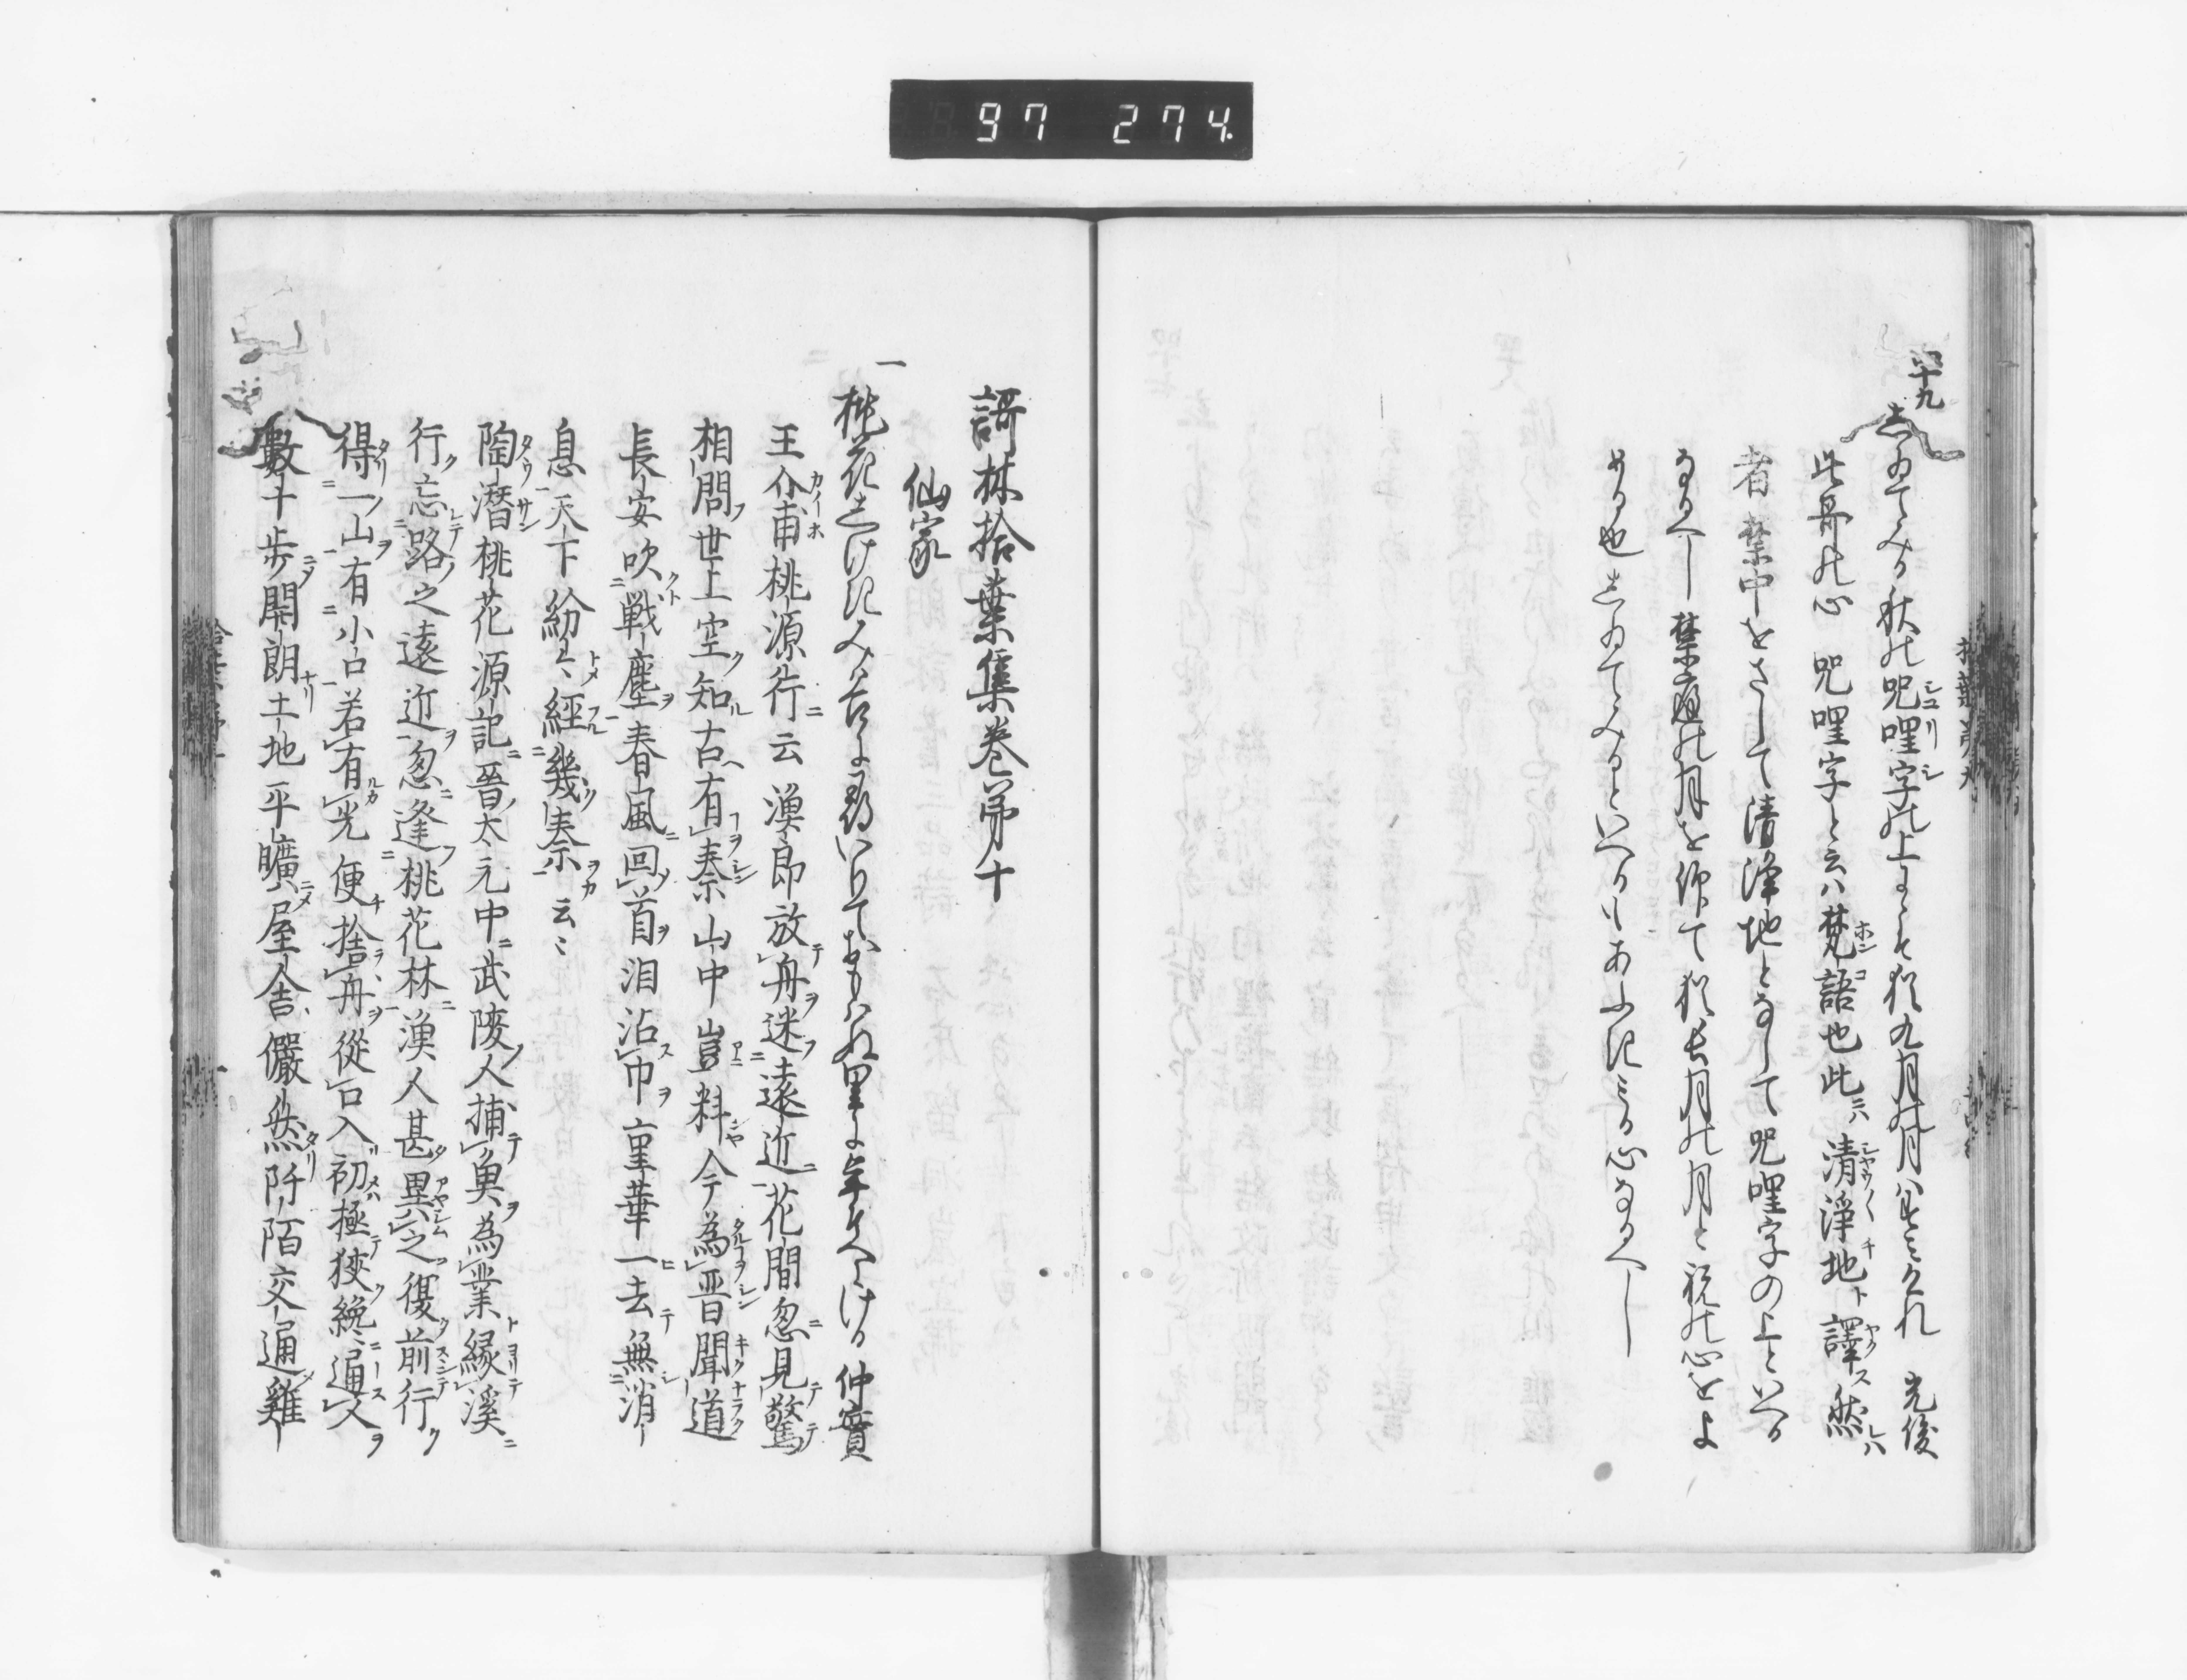 97 274.
四十九
しゐてみる秋の呪哩字の上にこそ猶九月の月はすみけれ 光俊
此哥の心 呪哩字と云ハ梵語也此ニハ清淨地ト譯ス然レハ
者禁中をさして清淨地となして呪哩字の上といへる
なるへし禁庭の月を侭て猶長月の月と祝の心をよ
める也しゐてみるといへるはあふきみる心なるへし
謌林拾葉集巻第十
仙家
一
桃花さけはみ谷に尋いりておもはぬ里に年そへにける 仲實
王介甫桃源行ニ云漁郎放舟迷遠近花間忽見驚
相問世上空知古有秦山中豈料今為晋聞道
長安吹戦塵春風回首泪沾巾重華一去無消
息天下紛々經幾秦云々
陶潜桃花源記晋太元中武陵人捕魚為業縁溪
行忘路之遠近忽逢桃花林漁人甚異之復前行
得一山有小口若有光便捨舟從口入初極狹纔通人
數十歩開朗土地平曠屋舎儼然阡陌交通雞